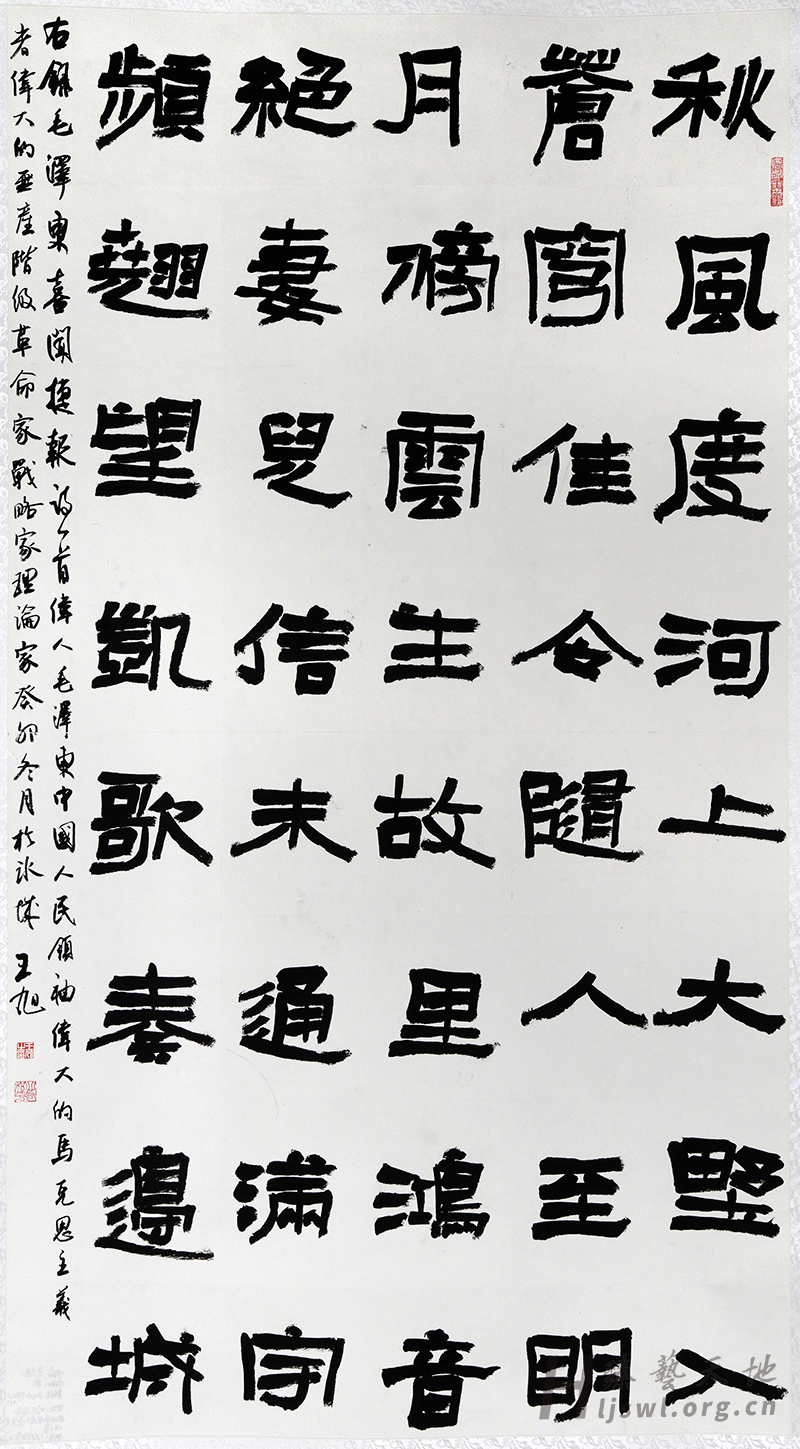 秋風度河上大墅入
蒼穹佳令隨人至明
月傍雲生故里鴻音
絕妻兒信未通滿宇
頻翹望凱歌奏邊城
右錄毛澤東喜聞捷報詩一首偉人毛澤東中國人民領袖偉大的馬克思主義
者偉大的無產階級革命家戰略家理論家癸卯冬月於冰城王旭
藝天地
ljcwl.org.cn